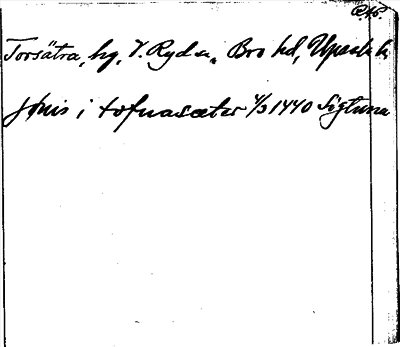 Torsätra, hg, V. Ryd sn, Bro hd, Upsala l.
jønis i tofnasæter 4/3 1440 Sigtuna